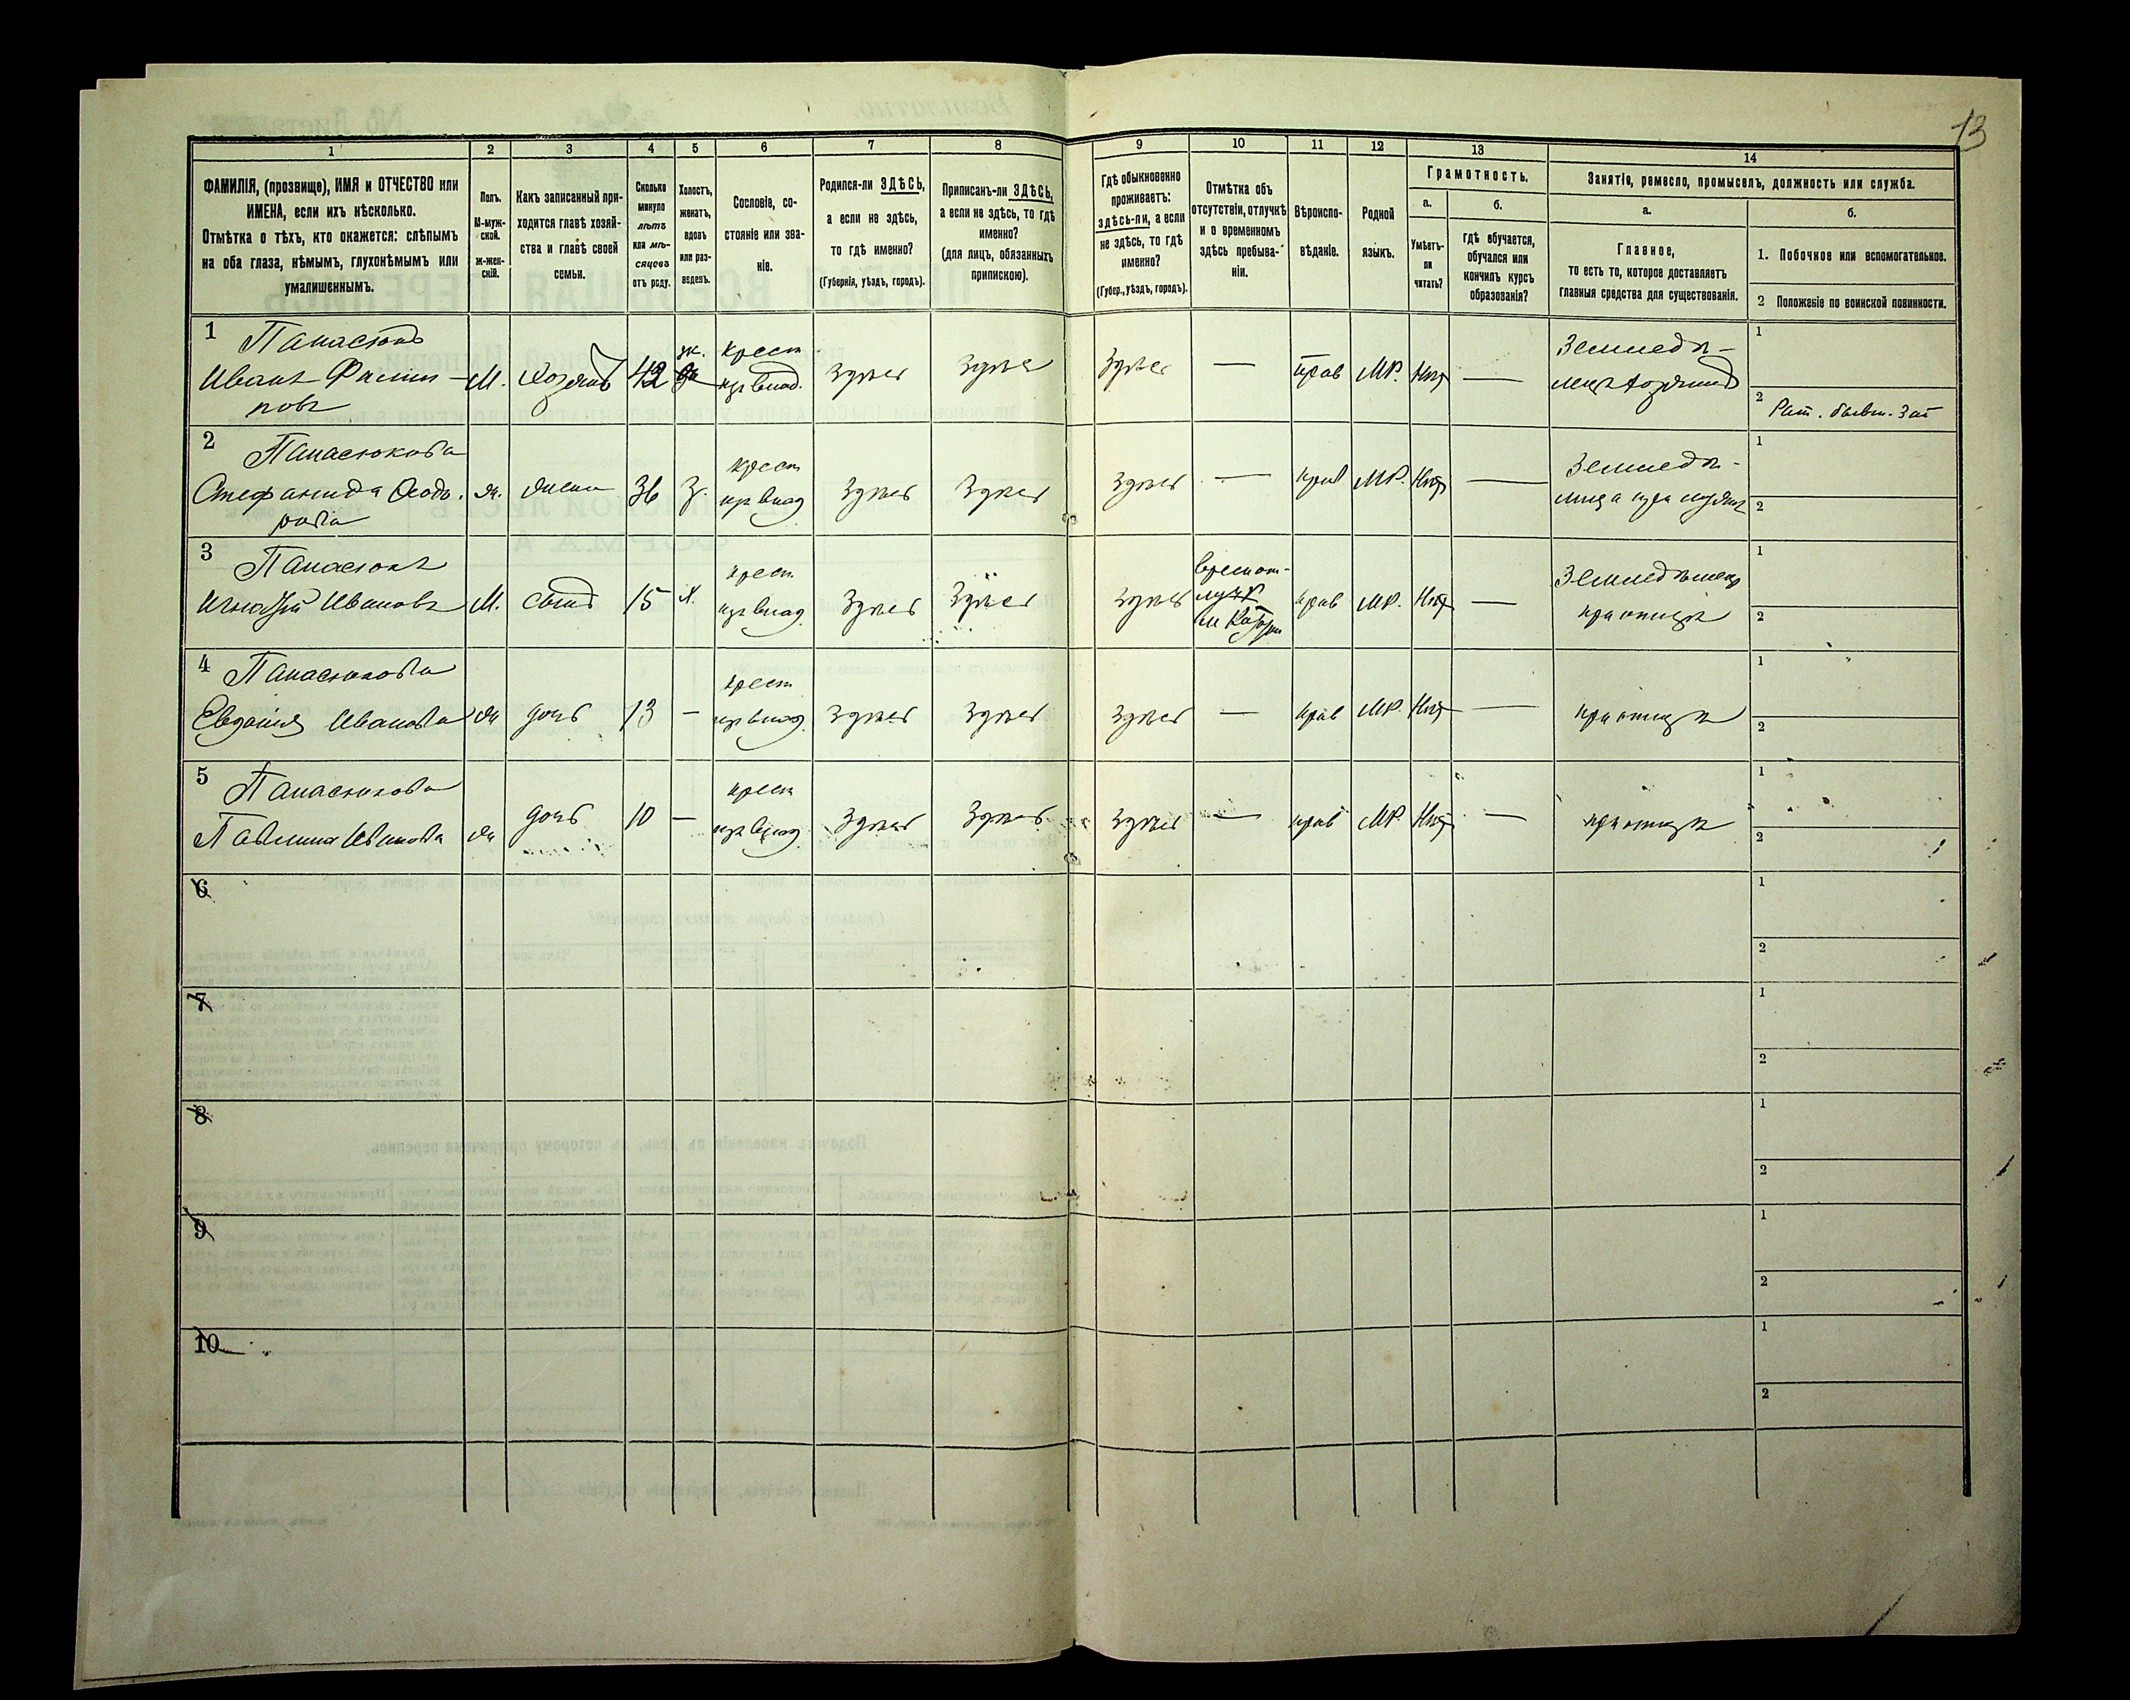 13
1
ФАМИЛІЯ, (прозвище), ИМЯ и ОТЧЕСТВО или
ИМЕНА, если ихъ нѣсколько.
Отмѣтка о тѣхъ, кто окажется: слѣпымъ
на оба глаза, нѣмымъ, глухонѣмымъ или
умалишеннымъ.
2
Полъ.
М-муж-
ской.
ж-жен-
скій.
3
Какъ записанный при-
ходится главѣ хозяй-
ства и главѣ своей
семьи.
4
Сколько
минуло
лѣтъ
или мѣ-
сяцевъ
отъ роду.
5
Холостъ,
женатъ,
вдовъ
или раз-
веденъ.
6
Сословіе, со-
стояніе или зва-
ніе.
7
Родился-ли ЗДѢСЬ,
а если не здѣсь,
то гдѣ именно?
(Губернія, уѣздъ, городъ).
8
Приписанъ-ли ЗДѢСЬ,
а если не здѣсь, то гдѣ
именно?
(для лицъ, обязанныхъ
припискою).
9
Гдѣ обыкновенно
проживаетъ:
здѣсь-ли, а если
не здѣсь, то гдѣ
именно?
(Губер., уѣздъ, городъ).
10
Отмѣтка объ
отсутствіи, отлучкѣ
и о временномъ
здѣсь пребыва-
ніи.
11
Вѣроиспо-
вѣданіе.
12
Родной
языкъ.
13
Грамотность.
а.
Умѣетъ-
ли
читать?
б.
гдѣ обучается,
обучался или
кончилъ курсъ
образованія?
14
Занятіе, ремесло, промыселъ, должность или служба.
а.
Главное,
то есть то, которое доставляетъ
главныя средства для существованія.
б.
1. Побочное или вспомогательное.
2 Положеніе по воинской повинности.
1
Панасюкъ
Иванъ Филип-
повъ
М.
хозяинъ
42
ж.
крест
изъ влад.
здѣсь
здѣсь
здѣсь
—
прав
МР.
Нѣт
—
Земледѣ-
лецъ хозяинъ
1
2 Рат.
2
Панасюкова
Стефанида Ѳеодо-
рова
ж.
жена
36
З.
крест
изъ влад
Здѣсь
Здѣсь
Здѣсь
—
прав
МР.
Нѣт
—
Земледѣ-
лица при мужѣ
1
2
3
Панасюкъ
Игнатій Ивановъ
М.
сынъ
15
х.
крест
изъ влад.
Здѣсь
Здѣсь
Здѣсь
прав
МР.
Нѣт
—
Земледѣлецъ
при отцѣ
1
2
4
Панасюкова
Евдокія Иванова
ж
дочь
13
—
крест
изъ влад.
Здѣсь
Здѣсь
Здѣсь
—
прав
МР.
Нѣт
—
при отцѣ
1
2
5
Панасюкова
Павлина Иванова
ж
дочь
10
—
крест
изъ влад
Здѣсь
Здѣсь
Здѣсь
—
прав
МР.
Нѣт
—
при отцѣ
1
2
6
1
2
7
1
2
8
1
2
9
1
2
10
1
2